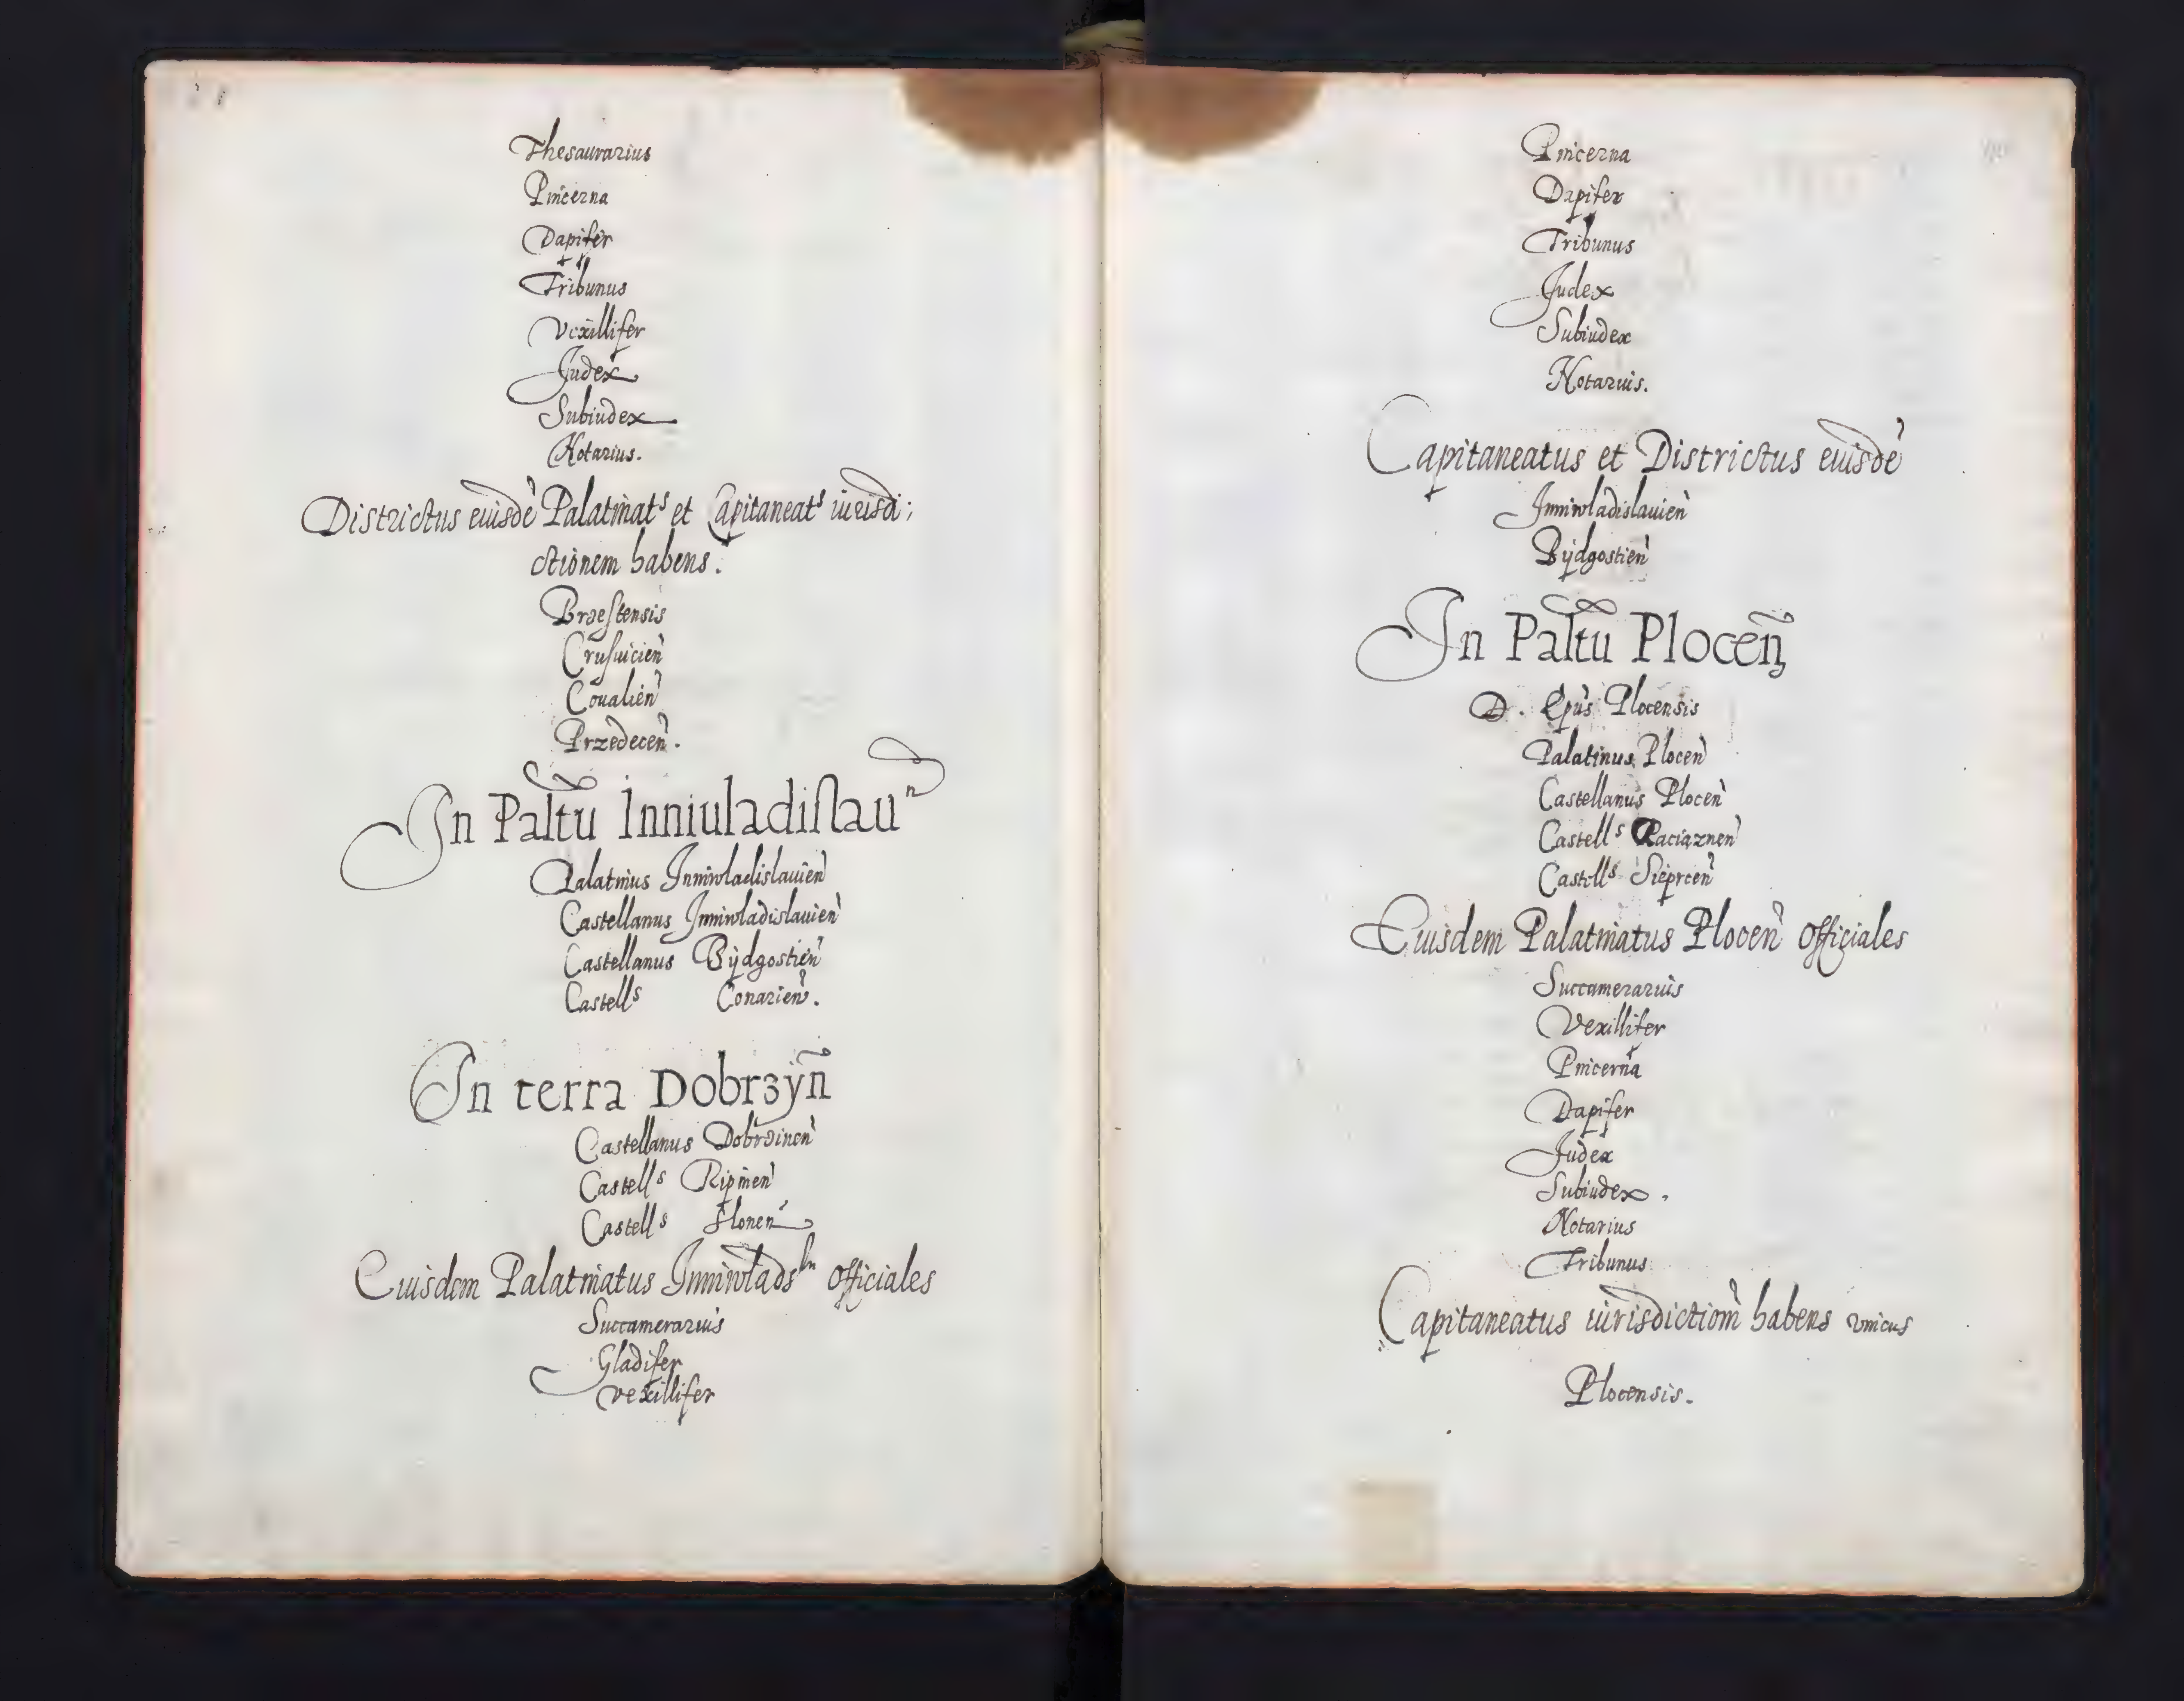 Thesaurarius
Pincerna
Dapifer
Tribunus
Vexillifer
Judex
Subiudex
Notarius.
Districtus eiusdē Palatinatˢ et Capitaneatˢ iurisdi;
ctionem habens.
Brzestensis
Crusuicien̄
Coualien̄
Przedecen̄.
In Paltu Inniuladislauⁿ
Palatinus Inniwladislauien̄
Castellanus Inniwladislauien̄
Castellanus Bydgostien̄
Castellˢ Conarien̄.
In terra Dobrzyn̄
Castellanus Dobrzinen̄
Castellˢ Ripinen̄
Castellˢ Slonen̄
Eiusdem Palatinatus Inniwlads officiales
Succamerarius
Gladifer
Vexillifer
Pincerna
Dapifer
Tribunus
Judex
Subiudex
Notarius.
Capitaneatus et Districtus eiusdē
Inniwladislauien̄
Bydgostien̄
In Paltu Plocen̄
D. Epūs Plocensis
Palatinus Plocen̄
Castellanus Plocen̄
Castellˢ Raciąznen̄
Castellˢ Sieprcen̄
Eiusdem Palatinatus Plocen̄ officiales
Succamerarius
Vexillifer
Pincerna
Dapifer
Judex
Subiudex.
Notarius
Tribunus
Capitaneatus iurisdictiom̄ habens vnicus
Plocensis.